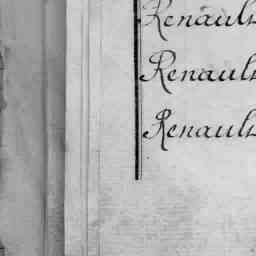 Renault
Renault
Renault